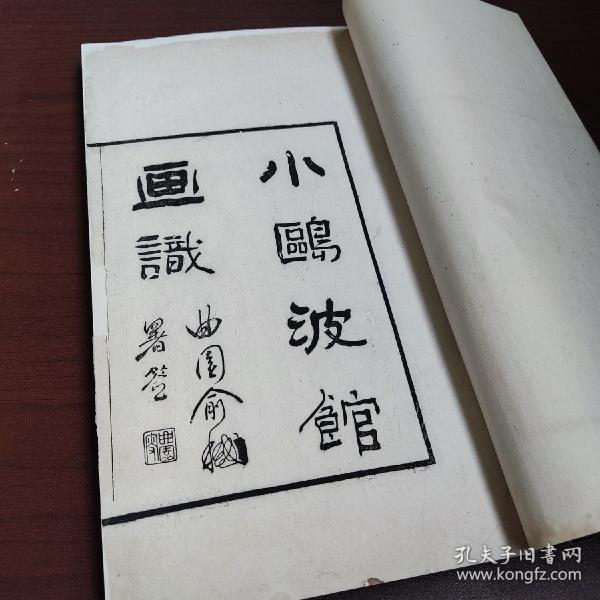 小鷗波館
画識
曲園俞樾
署簽
孔夫子旧书网
www.kongfz.com